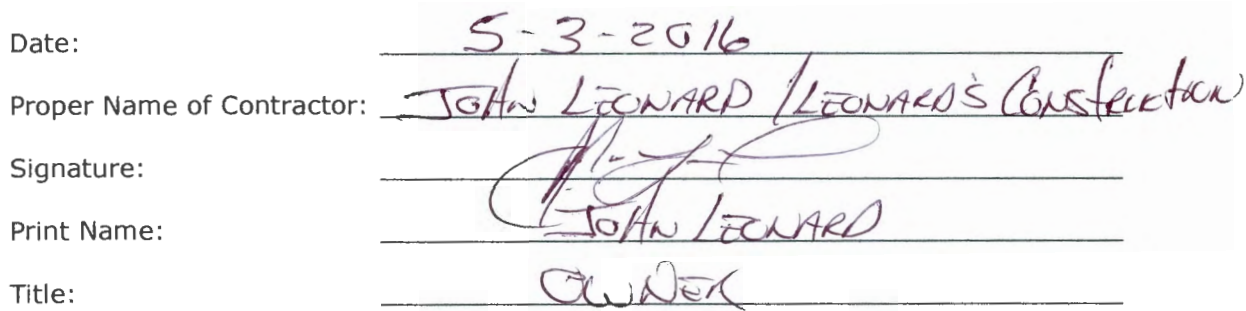 Date: 5-3-2016
Proper Name of Contractor: JOHN LEONARD / LEONARD'S CONStruction
Signature:
Print Name: JOHN LEONARD
Title: OWNER